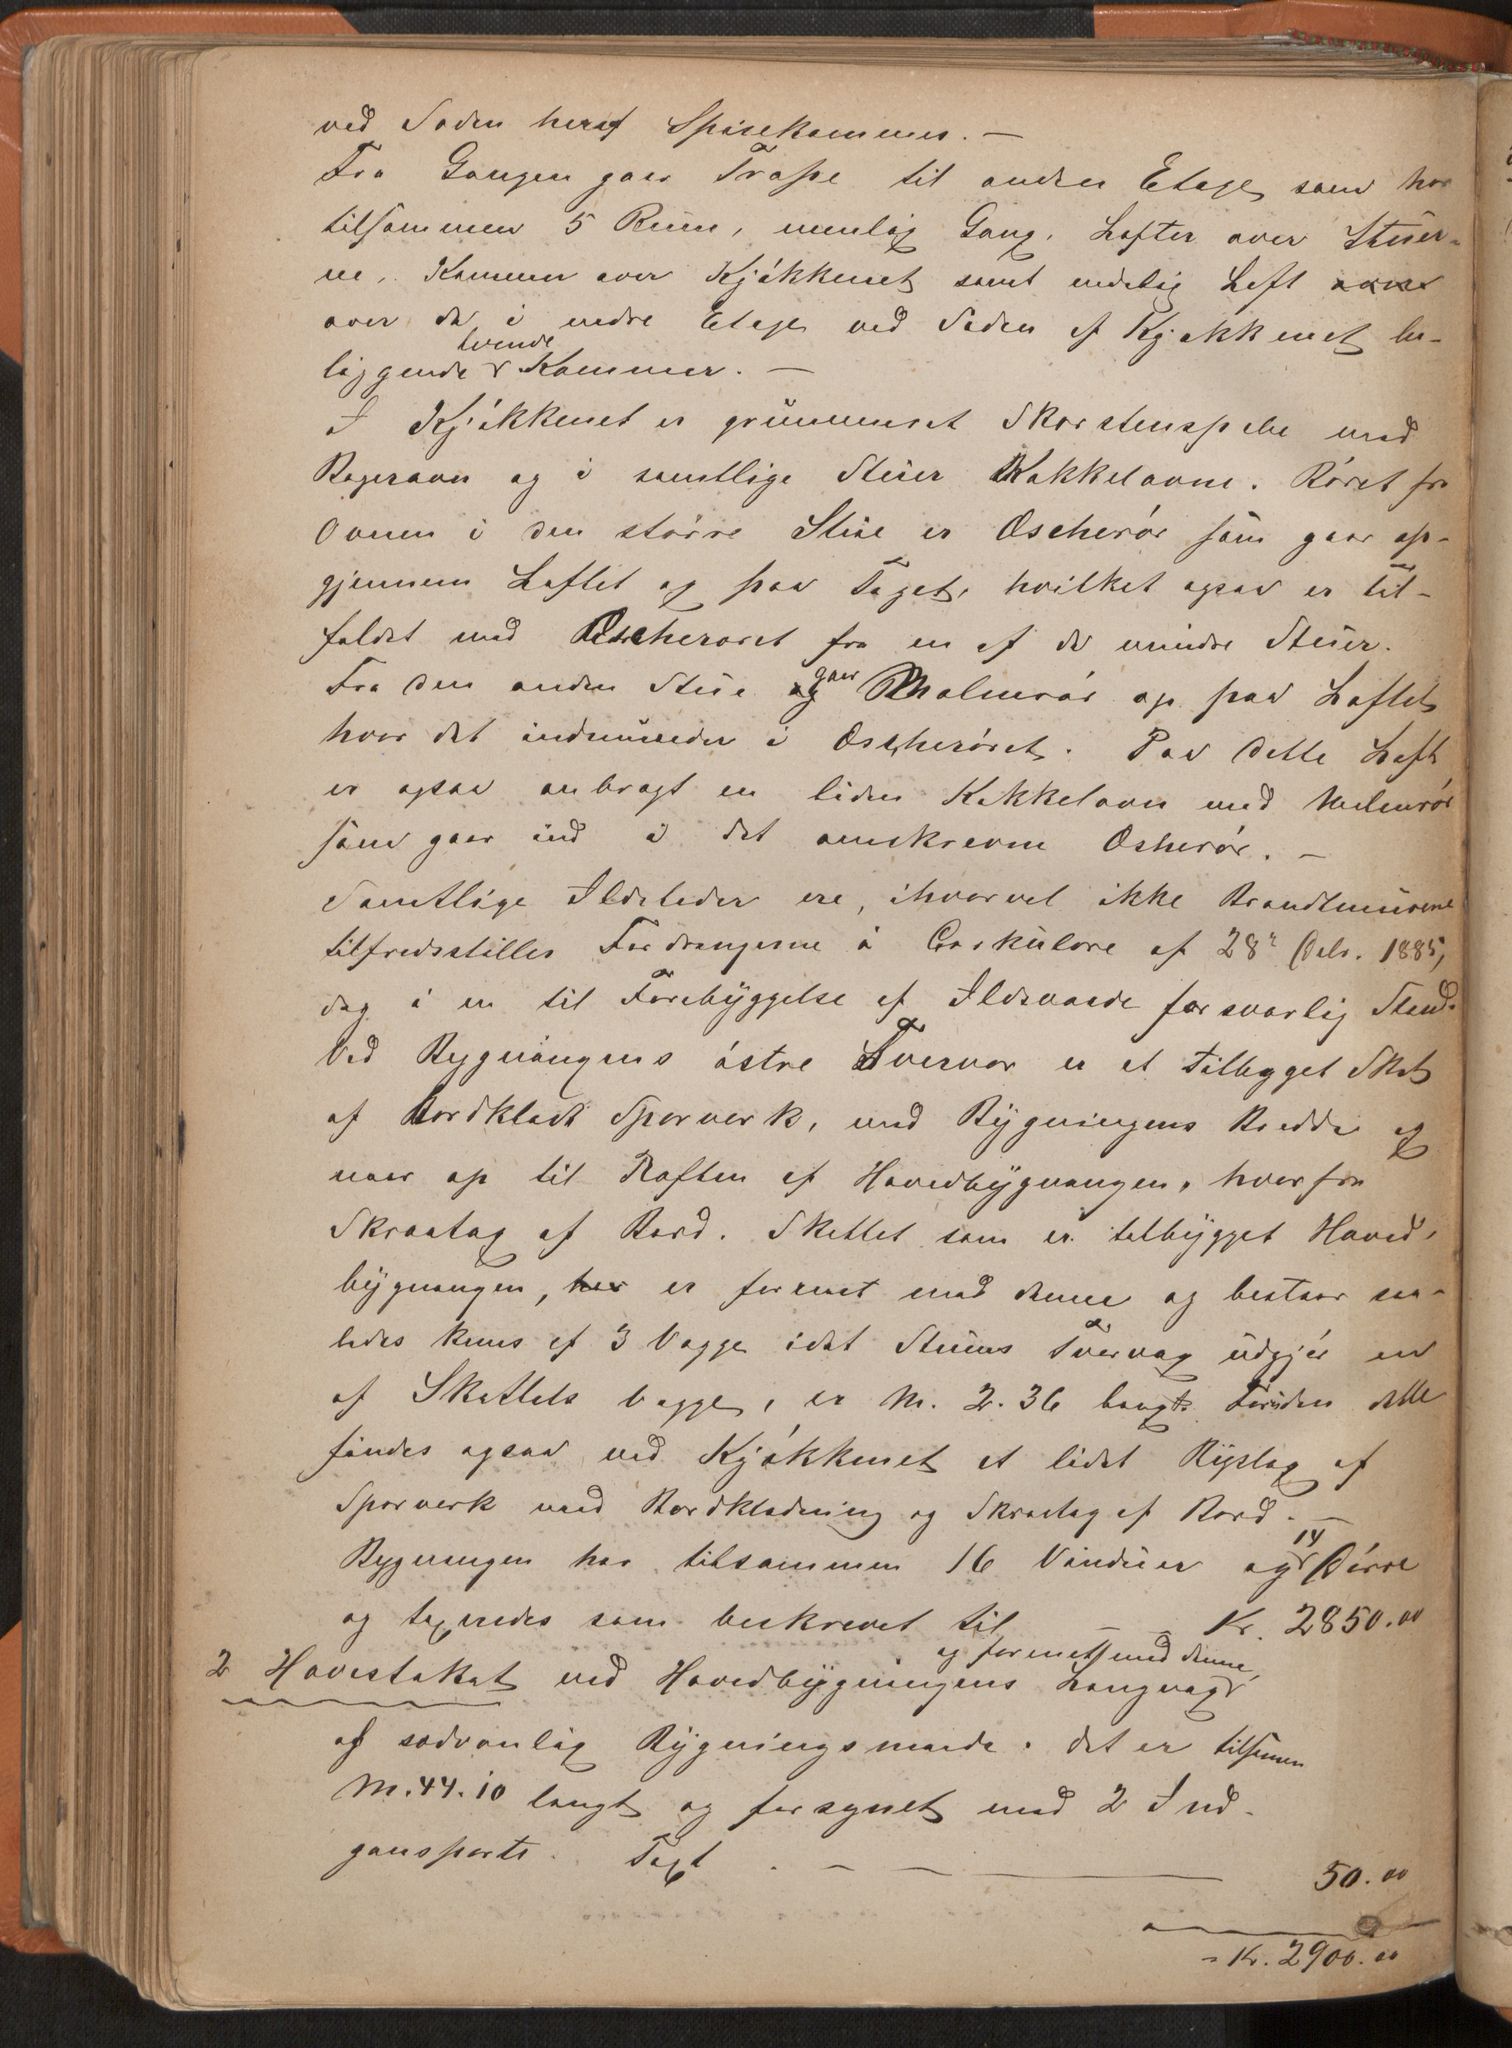 ved Siden heraf Spisekammer. —
Fra Gangen gaar Trappe til anden Etage som har
tilsammen 5 Rum, nemlig Gang, Lofter over Stuer-
ne, Kammer over Kjøkkenet samt endelig Loft
over de i nedre Etage ved Siden af Kjøkkenet be-
liggende tvende Kammer. —
I Kjøkkenet er grundmuret Skorstenspibe med
Bagerovn og i samtlige Stuer Kakkelovne. Røret fra
Ovnen i den større Stue er Oscherør som gaar op-
gjennem Loftet og paa Taget, hvilket ogsaa er Til-
fældet med Oscherøret fra en af de mindre Stuer.
Fra den anden Stue gaar Malmrør op paa Loftet
hvor det indmunder i Oscherøret. Paa dette Loft
er ogsaa anbragt en liden Kakkelovn med Malmrør
som gaar ind i det omskrevne Oscherør. —
Samtlige Ildsteder ere, ihvorvel ikke Brandmurene
tilfredsstiller Fordringerne i Cirkulære af 28 Octr. 1885,
dog i en til Forebyggelse af Ildsvaade forsvarlig Stand.
Ved Bygningens østre Tvervæg er et tilbygget Skot
af bordklædt Sperverk, med Bygningens Bredde og
naar op til Raften af Hovedbygningen, hvorfra
Skraatag af Bord. Skottet som er tilbygget Hoved-
bygningen, er forenet med denne og bestaar saa-
ledes kuns af 3 Vægge idet Stuens Tvervæg udgjør en
af Skottets Vægge, er M. 2.36 langt. Foruden dette
findes ogsaa ved Kjøkkenet et lidet Bislag af
Sperverk med Bordklædning og Skraatag af Bord. —
Bygningen har tilsammen 16 Vinduer og 14 Døre
og taxeredes som beskrevet til — — Kr. 2850.00
2 Havestakit ved Hovedbygningens Langvæg og forenet med denne,
af sædvanlig Bygningsmaade. Det er tilsammen
M. 44.10 langt og forsynet med 2 Ind-
gansporte. Taxt . — — — 50.00
= Kr. 2900.00